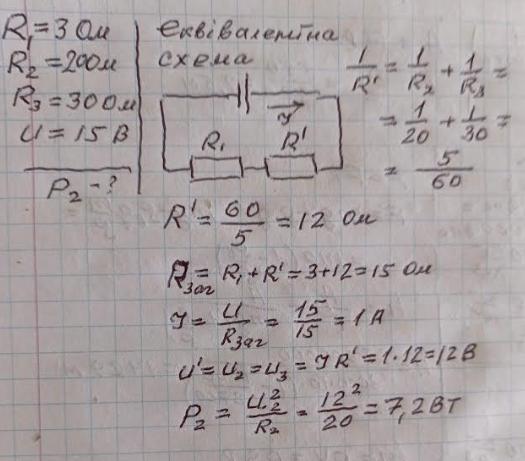 R₁ = 3 Ом
R₂ = 20 Ом
R₃ = 30 Ом
U = 15 В
P₂ - ?
еквівалентна
схема
I
R₁ R'
1/R' = 1/R₂ + 1/R₃ =
= 1/20 + 1/30 =
= 5/60
R' = 60/5 = 12 Ом
Rзаг = R₁ + R' = 3 + 12 = 15 Ом
I = U/Rзаг = 15/15 = 1 А
U' = U₂ = U₃ = I R' = 1 · 12 = 12 В
P₂ = U₂²/R₂ = 12²/20 = 7,2 Вт